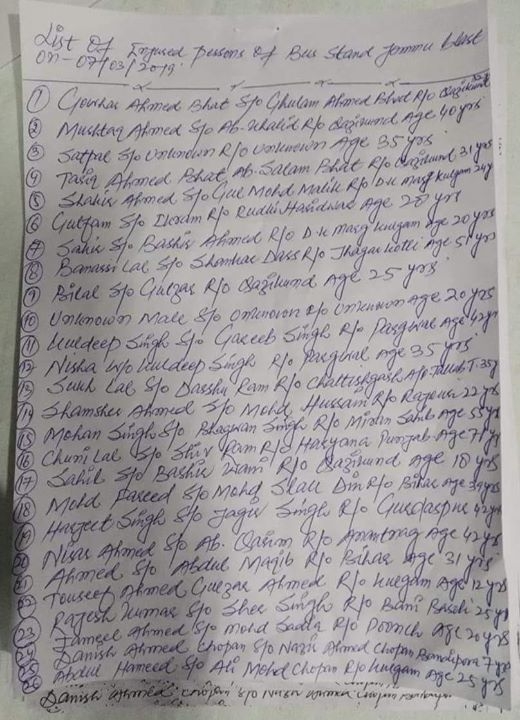 List Of Injured persons Of Bus Stand Jammu blast
on - 07/03/2019.
① Gowhar Ahmed Bhat S/o Ghulam Ahmed Bhat R/o Qazikund
② Mushtaq Ahmed S/o Ab. Khalid R/o Qazigund Age 40 yrs
③ Satpal S/o Unknown R/o Unknown Age 35 yrs
④ Tariq Ahmed Bhat Ab. Salam Bhat R/o Qazikund 31 yrs
⑤ Shakir Ahmed S/o Gul Mohd Malik R/o D.H Marg Kulgam 24 yrs
⑥ Gulfam S/o Ikram R/o Haridwar Age 28 yrs
⑦ Sahir S/o Bashir Ahmed R/o D.H Marg Kulgam Age 20 yrs
⑧ Banarsi Lal S/o Shankar Dass R/o Jhagar Kotli Age 51 yrs
⑨ Bilal S/o Gulzar R/o Qazikund Age 25 yrs
⑩ Unknown Male S/o Unknown R/o Unknown Age 20 yrs
⑪ Kuldeep Singh S/o Gareeb Singh R/o Pargwal Age 42 yrs
⑫ Nisha W/o Kuldeep Singh R/o Pargwal Age 35 yrs
⑬ Sukh Lal S/o Darshu Ram R/o Chattishgarh A/P Jammu T. 35 y
⑭ Shamsher Ahmed S/o Mohd. Hussain R/o Rajouri 22 yrs
⑮ Mohan Singh S/o Bhagwan Singh R/o Miran Sahib Age 55 yrs
⑯ Chuni Lal S/o Shiv Ram R/o Haryana Punjab Age 71 yrs
⑰ Sahil S/o Bashir Wani R/o Qazikund Age 18 yrs
⑱ Mohd Fareed S/o Mohd Din R/o Bihar Age 39 yrs
⑲ Harjeet Singh S/o Jagir Singh R/o Gurdaspur 42 yrs
⑳ Nisar Ahmed S/o Ab. Qasim R/o Anantnag Age 42 yrs
㉑ Ahmed S/o Abdul Majib R/o Bihar Age 31 yrs
㉒ Touseef Ahmed Gulzar Ahmed R/o Kulgam Age 12 yrs
㉓ Rajesh Kumar S/o Sher Singh R/o Bani Basoli 25 yrs
Jameel Ahmed S/o Mohd Sadla R/o Poonch Age 20 yrs
Danish Ahmed Chopan S/o Nazir Ahmed Chopan Bandipora 7 yrs
Abdul Hameed S/o Ali Mohd Chopan R/o Kulgam Age 25 yrs
Danish Ahmed Chopan S/o Nazir Ahmed Chopan